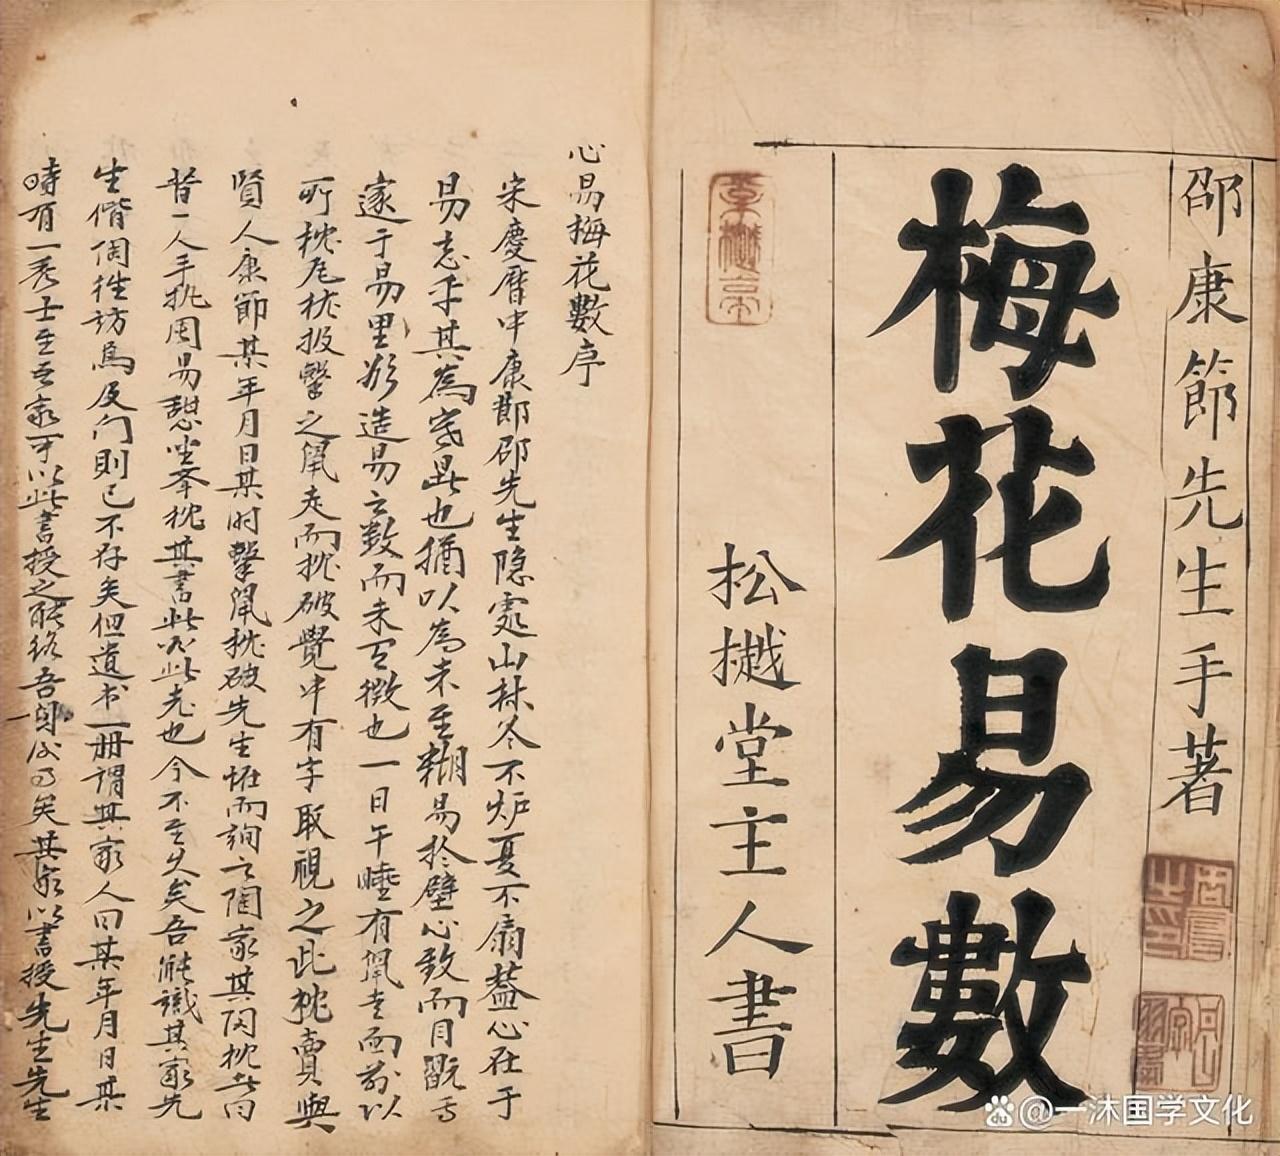 邵康節先生手著
梅花易數
松樾堂主人書
心易梅花數序
宋慶曆中康節邵先生隐處山林冬不炉夏不扇盖心在于
易忘乎其為寒暑也猶以為未至糊易於壁心致而目翫焉
邃于易里欲造易之數而未有徵也一日午睡有鼠走而前以
所枕瓦枕投擊之鼠走而枕破覺中有字取視之此枕賣與
賢人康節某年月日某时擊鼠枕破先生怪而詢之陶家其陶枕者曰
昔一人手执周易憩坐举枕其書此必此老也今不至久矣吾能識其家先
生偕陶往訪焉及门則已不存矣但遺书一册謂其家人曰某年月日某
時有一秀士至吾家可以此書授之能終吾身後事矣其家以書授先生先生
@一沐国学文化